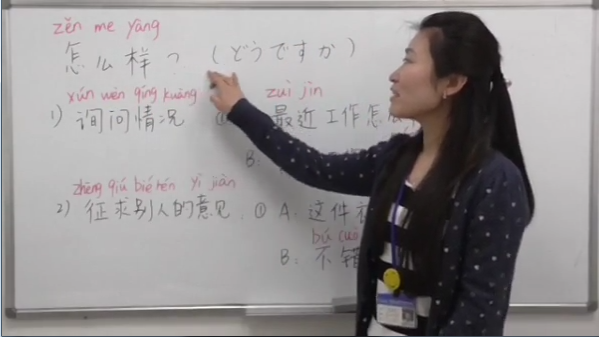 zěn me yàng
怎么样？（どうですか）
xún wèn qíng kuàng zuì jìn
1) 询问情况 ① 最近工作怎
B:
zhēng qiú bié rén yì jiàn
2) 征求别人的意见: ① A: 这件
bú cuò
B: 不错